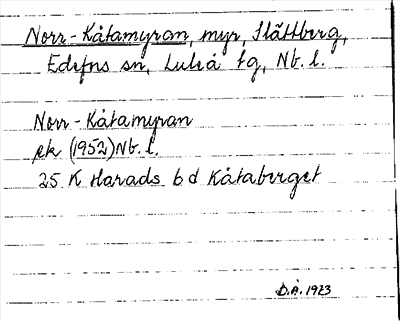 Norr-Kåtamyran, myr, Slättberg,
Edefns sn, Luleå tg, Nb. l.
Norr-Kåtamyran
ek (1952) Nb. l.
25 K Harads b d Kåtaberget
D.Å. 1973